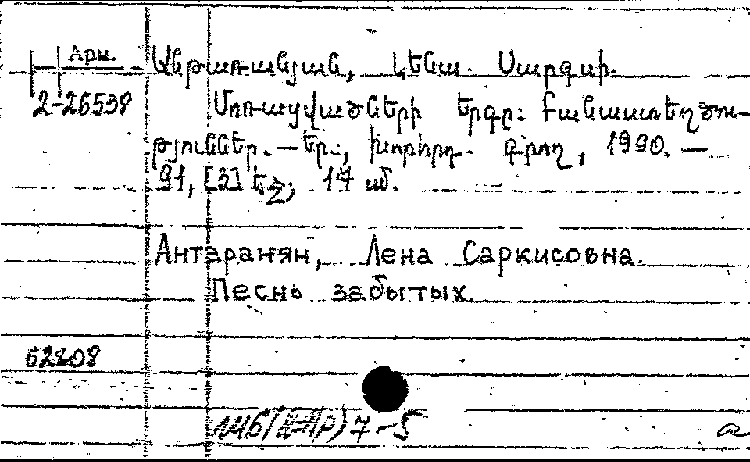 Арм.
Անթառանյան, Լենա Սարգսի.
2-26538
Մոռացվածների երգը: Բանաստեղծու-
թյուններ. — Եր., Խորհրդ. գրող, 1990. —
91, [3] էջ; 17 սմ.
Антаранян, Лена Саркисовна.
Песнь забытых.
62808
7-5
а